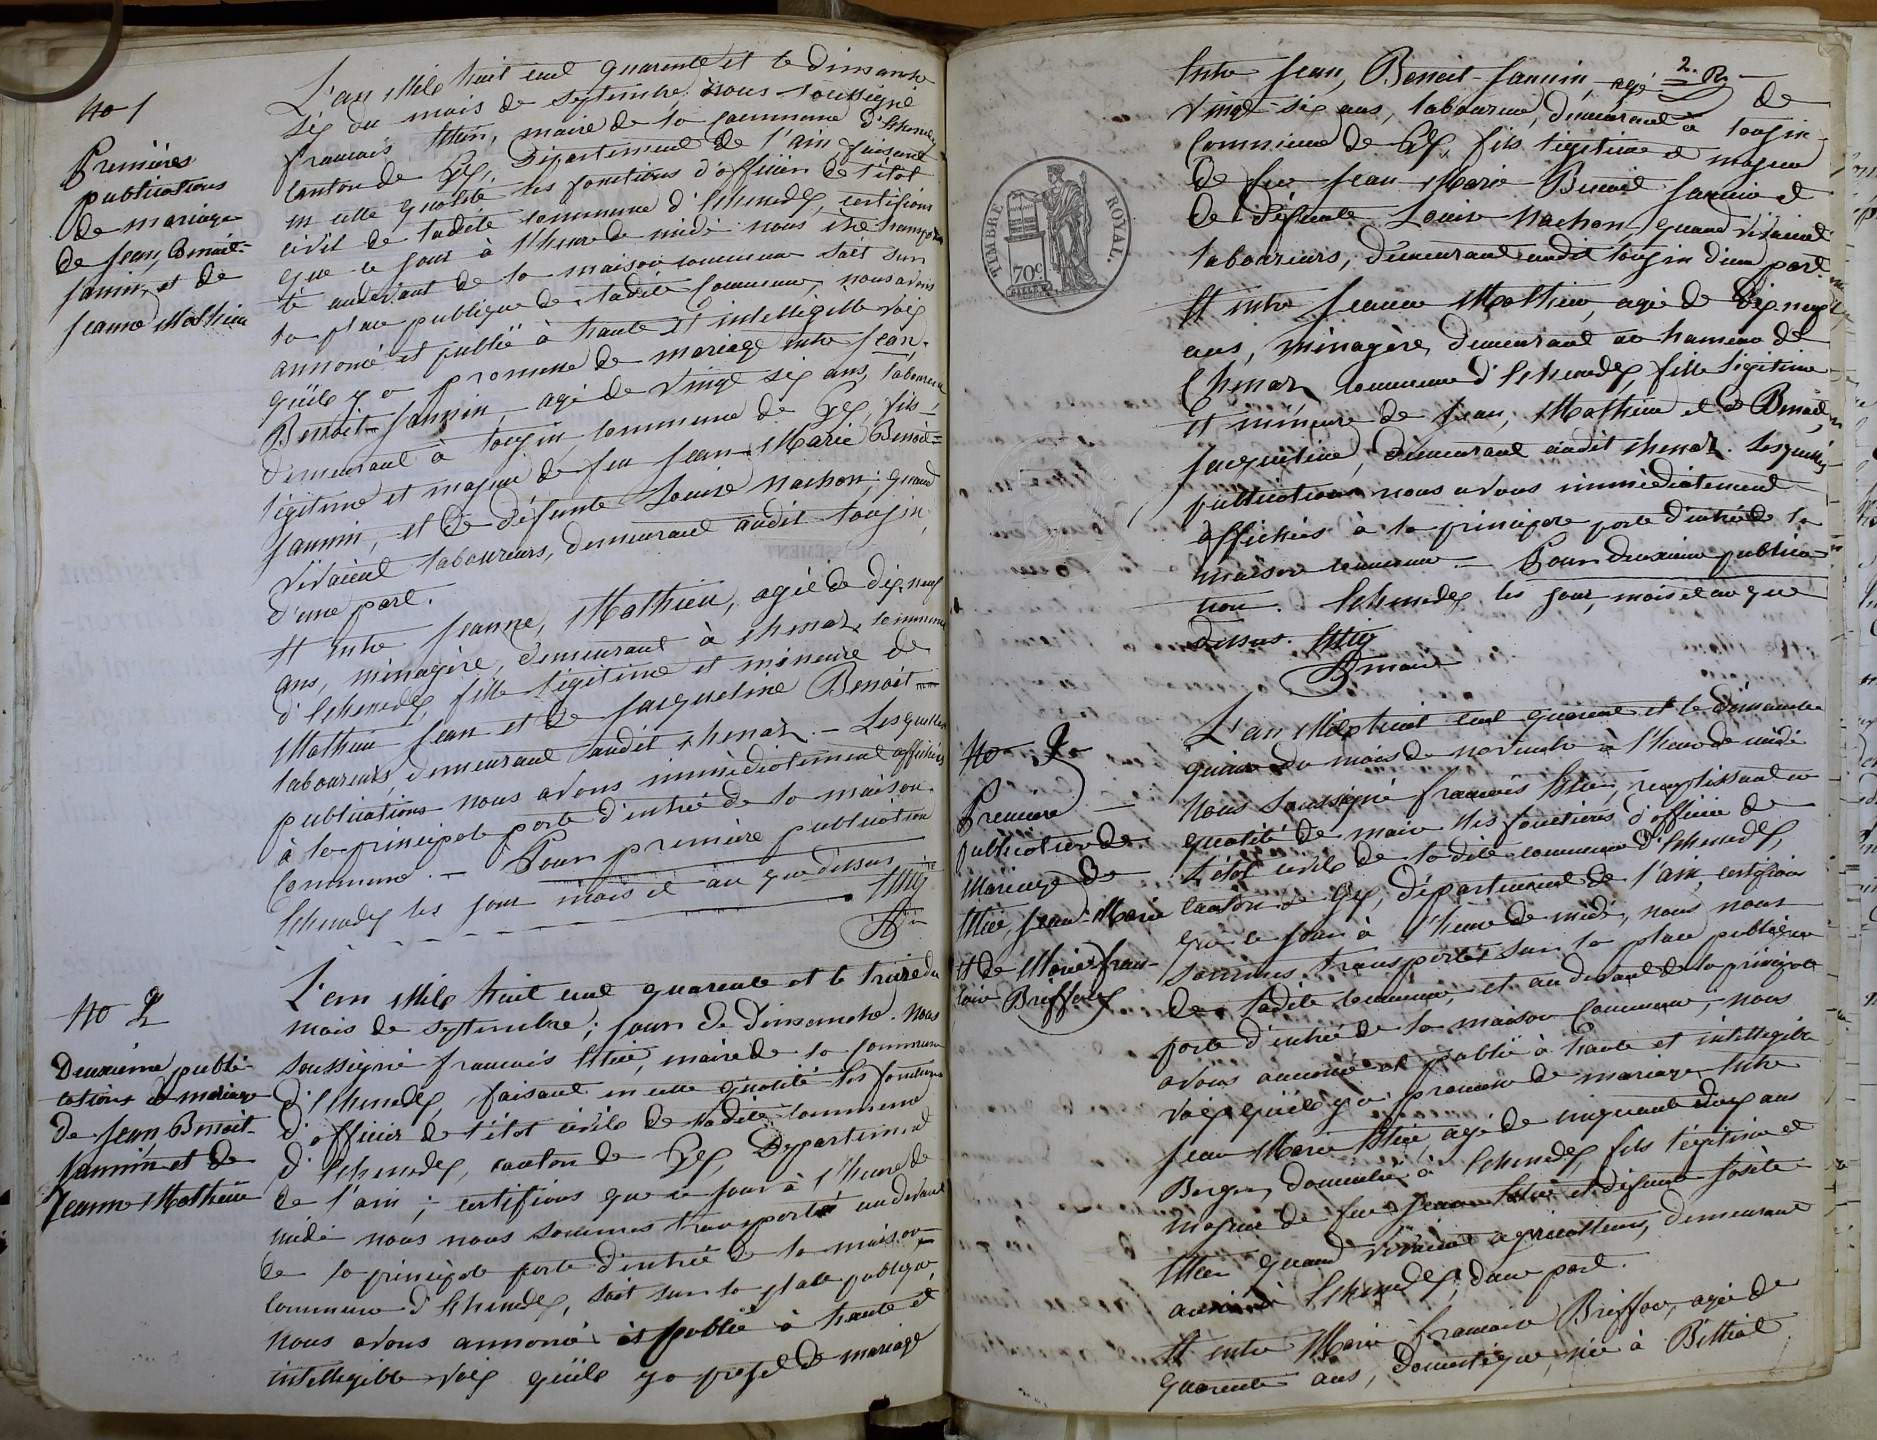 No 1
Premières
publications
de mariage
de Jean, Benoit-
Jannin, et de
Jeanne Mathieu
L'an Mile huit cent quarente et le Dimanche
six du mois de Septembre. Nous soussigné
francois maire de la commune d'Echenevex
Canton de Gex, Département de l'ain faisant
en cette qualité les fonctions d'officier de l'état
civil de ladite commune d'Echenevex, certifions
que ce jour à l'heure de midi nous être transpor
té audevant de la maison commune soit sur
la place publique de ladite Commune, nous avons
annoncé et publié à haute et intelligible voix
qu'il y a promesse de mariage entre Jean,
Benoit-Jannin, agé de vingt six ans, laboureur
demeurant à tougin, commune de Gex, fils
légitime et majeur de feu Jean-Marie Benoit=
Jannin, et de défunte Louise Nachon, quand
vivaient laboureurs, demeurant audit tougin,
d'une part.
Et entre Jeanne, Mathieu, agée de dix neuf
ans, ménagère, demeurant à chenaz, commune
d'Echenevex, fille légitime et mineure de
Mathieu Jean et de Jacqueline Benoit
laboureurs, demeurant audit chenaz. - Lesquelles
publications nous avons immédiatement affichées
à la principale porte d'entrée de la maison
Commune. - Pour première publication
Echenevex les jour mois et an que dessus
No 2
Deuxième publi-
cations de mariage
de Jean, Benoit-
Jannin et de
Jeanne Mathieu
L'an Mile huit cent quarente et le treize du
mois de septembre; jour de Dimanche. Nous
soussigné francois maire de la commune
d'Echenevex, faisant en cette qualité les fonctions
d'officier de l'état civile de ladite commune
d'Echenevex, canton de Gex, Département
de l'ain; certifions que ce jour à l'heure de
midi nous nous sommes transporté au devant
de la principale porte d'entrée de la maison
commune d'Echenevex, soit sur la place publique,
nous avons annoncé et publié à haute et
intelligible voix qu'il y a projet de mariage
2. R.
Entre Jean, Benoit-Jannin, agé de
vingt-six ans, laboureur, demeurant à tougin
Commune de Gex, fils légitime et majeur
de feu Jean-Marie Benoit Jannin et
de défunte Louise Nachon, quand vivaient
laboureurs, demeurant audit tougin d'une part
Et entre Jeanne Mathieu, agée de dix neuf
ans, ménagère, demeurant au hameau de
Chenaz commune d'Echenevex, fille légitime
et mineure de Jean, Mathieu et de Benoit,
Jacqueline, demeurant audit chenaz. Lesquelles
publications nous avons immédiatement
affichées à la principale porte d'entrée de la
maison commune - Pour deuxième publica-
tion. Echenevex les jour, mois et an que
dessus.
maire
TIMBRE ROYAL.
70c
No 3
Première
publication de
Mariage de
Jean-Marie
et de Marie fran-
coise Briffod
L'an Mile huit cent quarente et le dimanche
quinze du mois de novembre à l'heure de midi
Nous soussigné francois remplissant en
qualité de maire les fonctions d'officier de
l'état civile de la dite commune d'Echenevex,
canton de Gex, département de l'ain, certifions
que ce jour à l'heure de midi, nous nous
sommes transportés sur la place publique
de ladite commune, et au devant de la principale
porte d'entrée de la maison Commune, nous
avons annoncé et publié à haute et intelligible
voix qu'il y a promesse de mariage entre
Jean Marie agé de cinquante ans
Berger, domicilié à Echenevex, fils légitime et
majeur de feu et défunte Josète
quand vivaient agriculteurs, demeurant
Echenevex, d'une part.
Et entre Marie francoise Briffod, agée de
quarente ans, domestique, née à